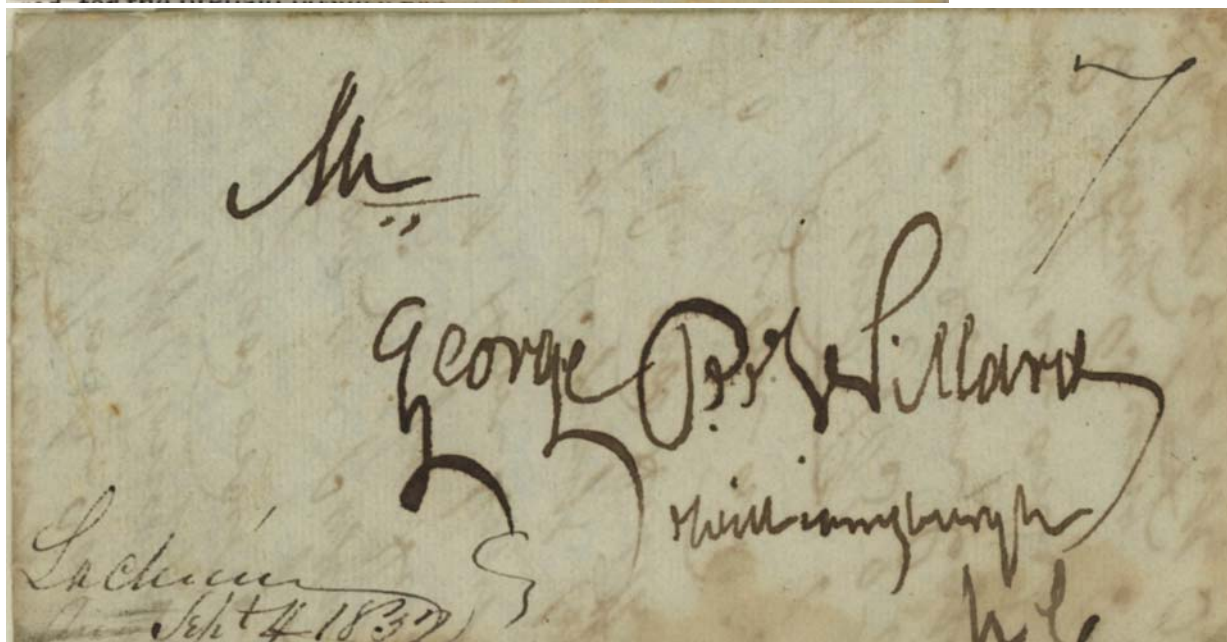 7
Mr
George P. Willard
Williamsburgh
Lachine
Sept 4 183